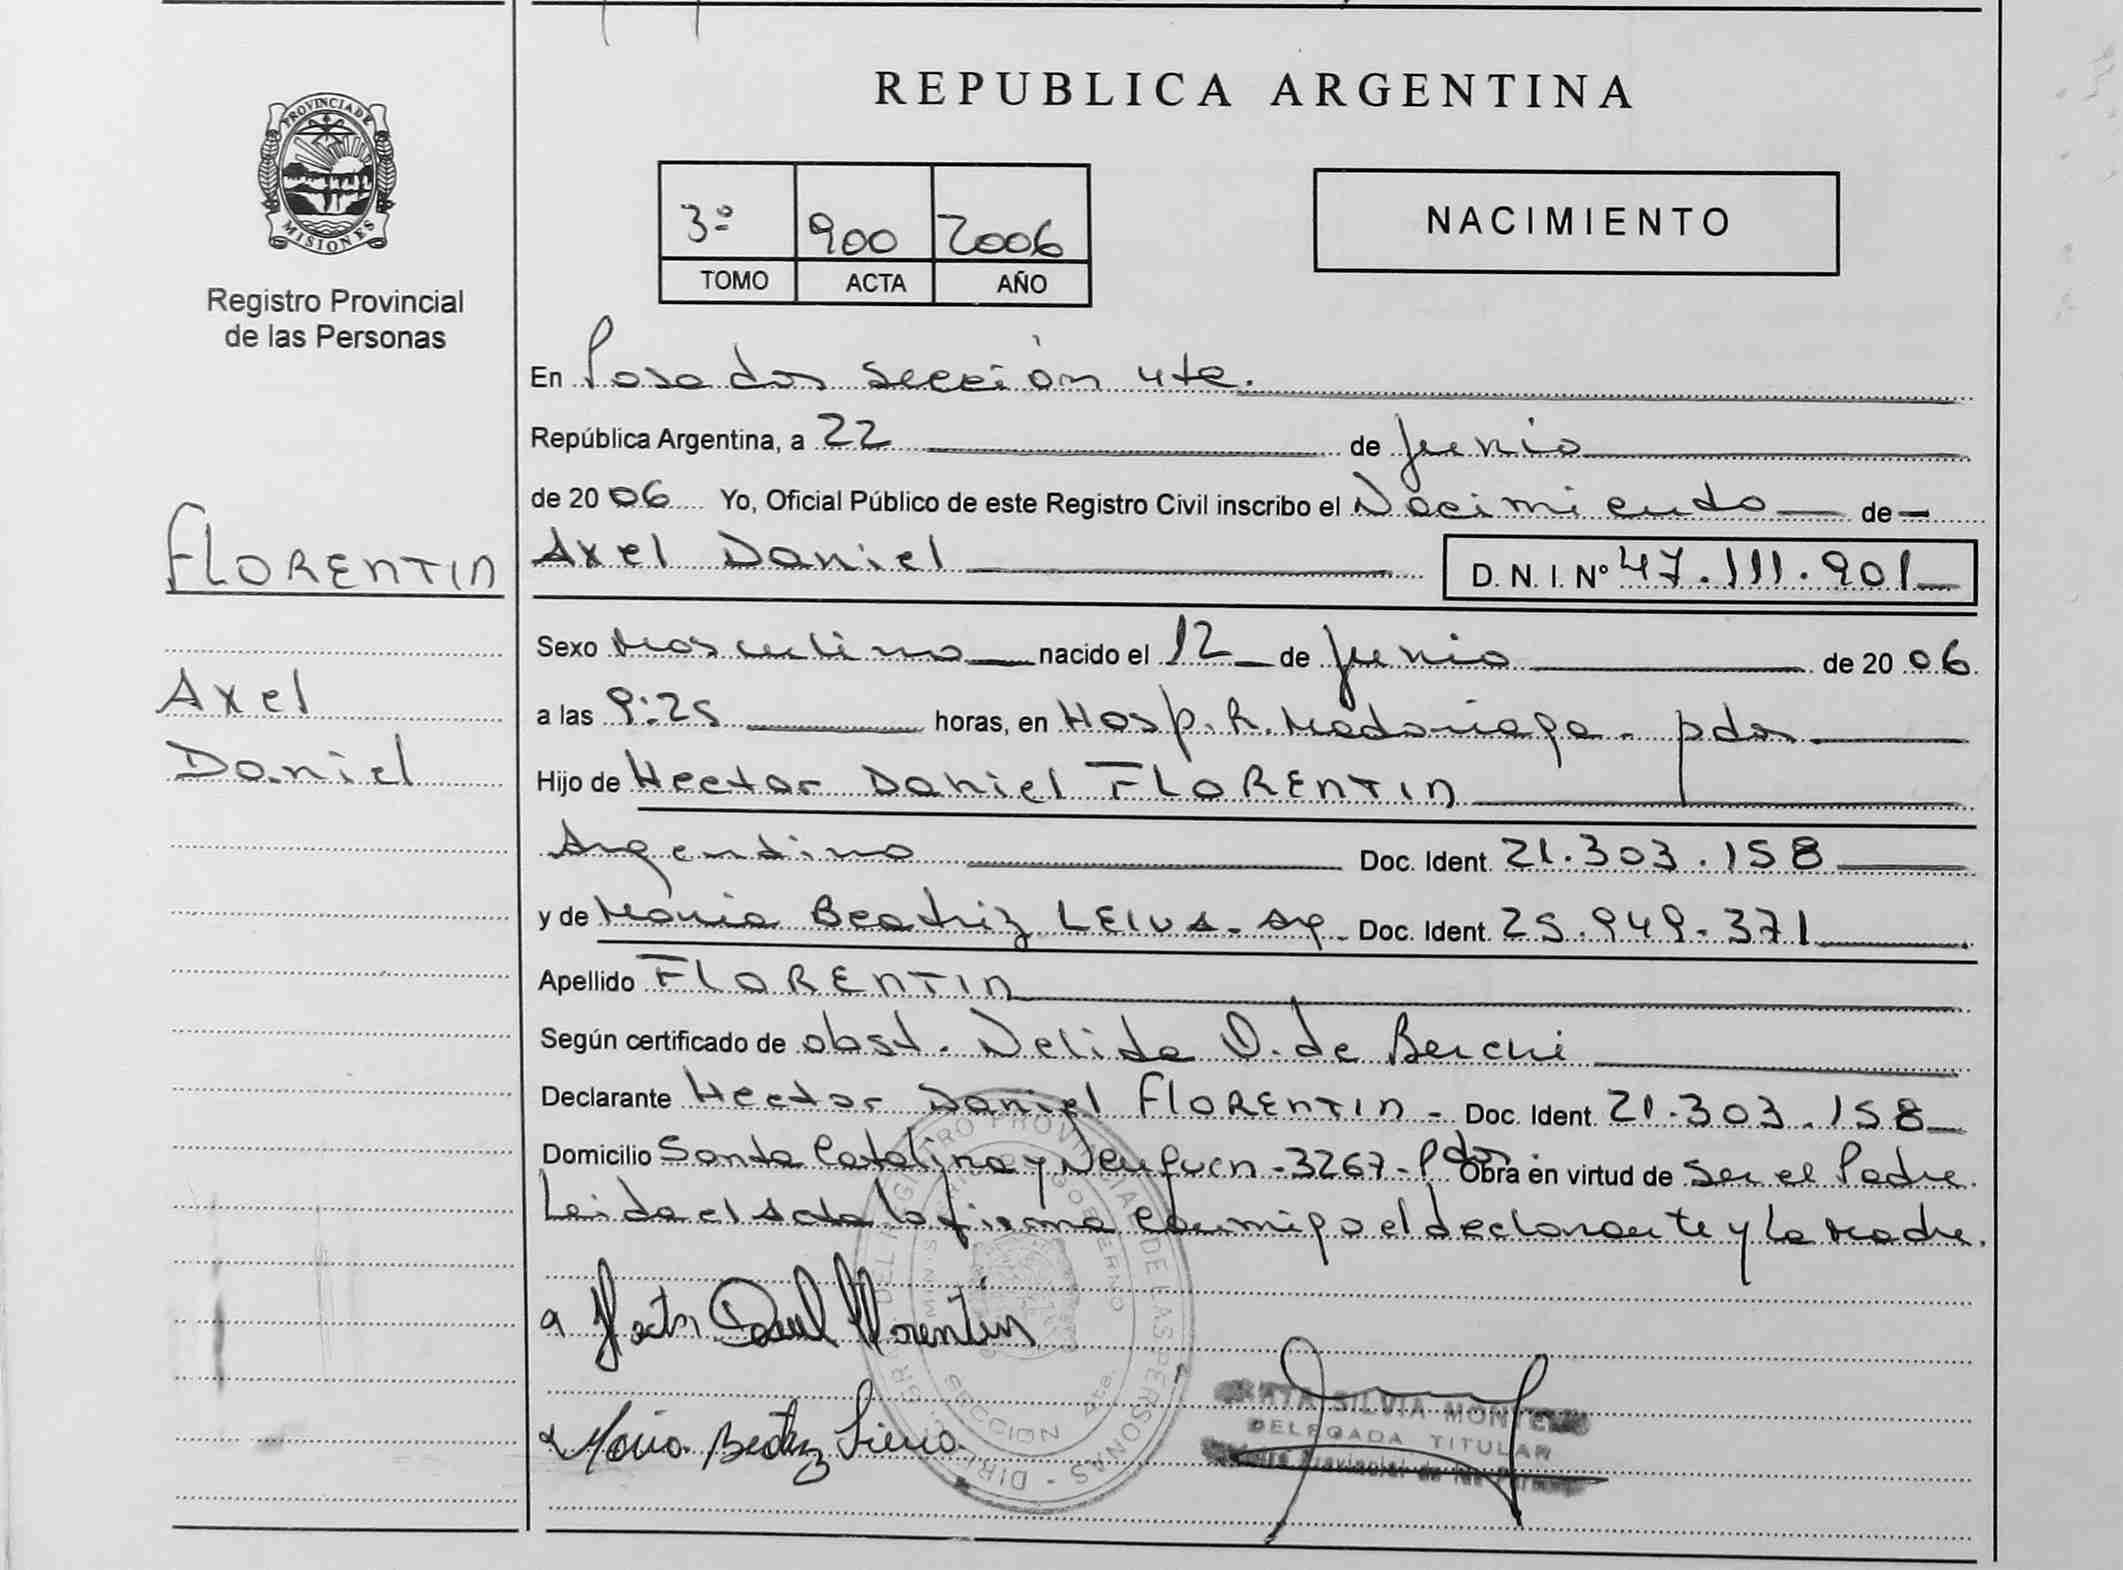 REPUBLICA ARGENTINA
PROVINCIA DE
MISIONES
Registro Provincial
de las Personas
3º 900 2006
TOMO ACTA AÑO
NACIMIENTO
En Posadas sección 4ta.
República Argentina, a 22 de junio
de 2006 Yo, Oficial Público de este Registro Civil inscribo el Nacimiento de
Axel Daniel D. N. I. Nº 47.111.901
FLORENTIN
Axel
Daniel
Sexo Masculino nacido el 12 de junio de 2006.
a las 9:25 horas, en Hosp. R. Madariaga - pdas.
Hijo de Hector Daniel FLORENTIN
Argentino Doc. Ident. 21.303.158
y de Maria Beatriz LEIVA - Arg. Doc. Ident. 25.949.371
Apellido FLORENTIN
Según certificado de obst. Nelida O. de
Declarante Hector Daniel FLORENTIN - Doc. Ident. 21.303.158
Domicilio Santa Catalina y Neuquen - 3267 - Pdas. Obra en virtud de Ser el Padre.
Leida el Acta la firma conmigo el declarante y la Madre.
Hector Daniel Florentin
Maria Beatriz
DIRECC. GR. DEL REGISTRO PROVINCIAL DE LAS PERSONAS
MINISTERIO DE GOBIERNO
SECCION 4ta.
SILVIA
DELEGADA TITULAR
Provincial de las